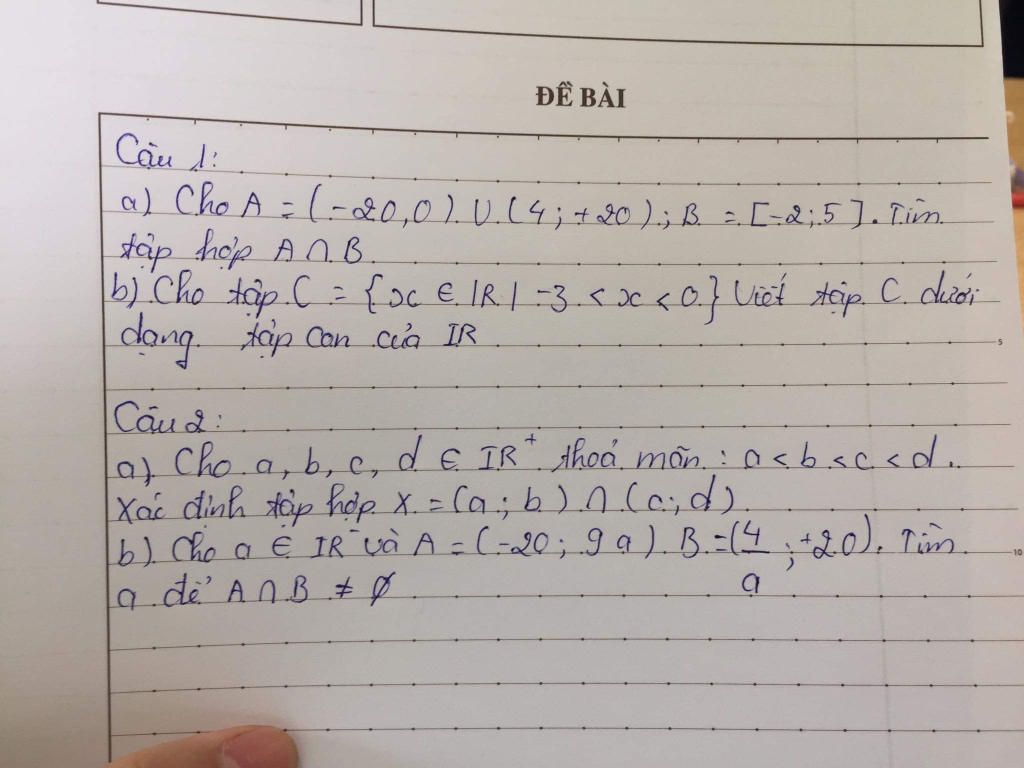 ĐỀ BÀI
Câu 1:
a) Cho A = (-20,0) U (4; +20); B = [-2; 5]. Tìm
tập hợp A ∩ B
b) Cho tập C = {x ∈ IR | -3 < x < 0} Viết tập C dưới
dạng tập con của IR
5
Câu 2:
a) Cho a, b, c, d ∈ IR⁺ thoả mãn : a < b < c < d.
Xác định tập hợp X = (a; b) ∩ (c; d)
b) Cho a ∈ IR⁻ và A = (-20; 9a) B = (4/a; +20). Tìm
10
a để A ∩ B ≠ ∅